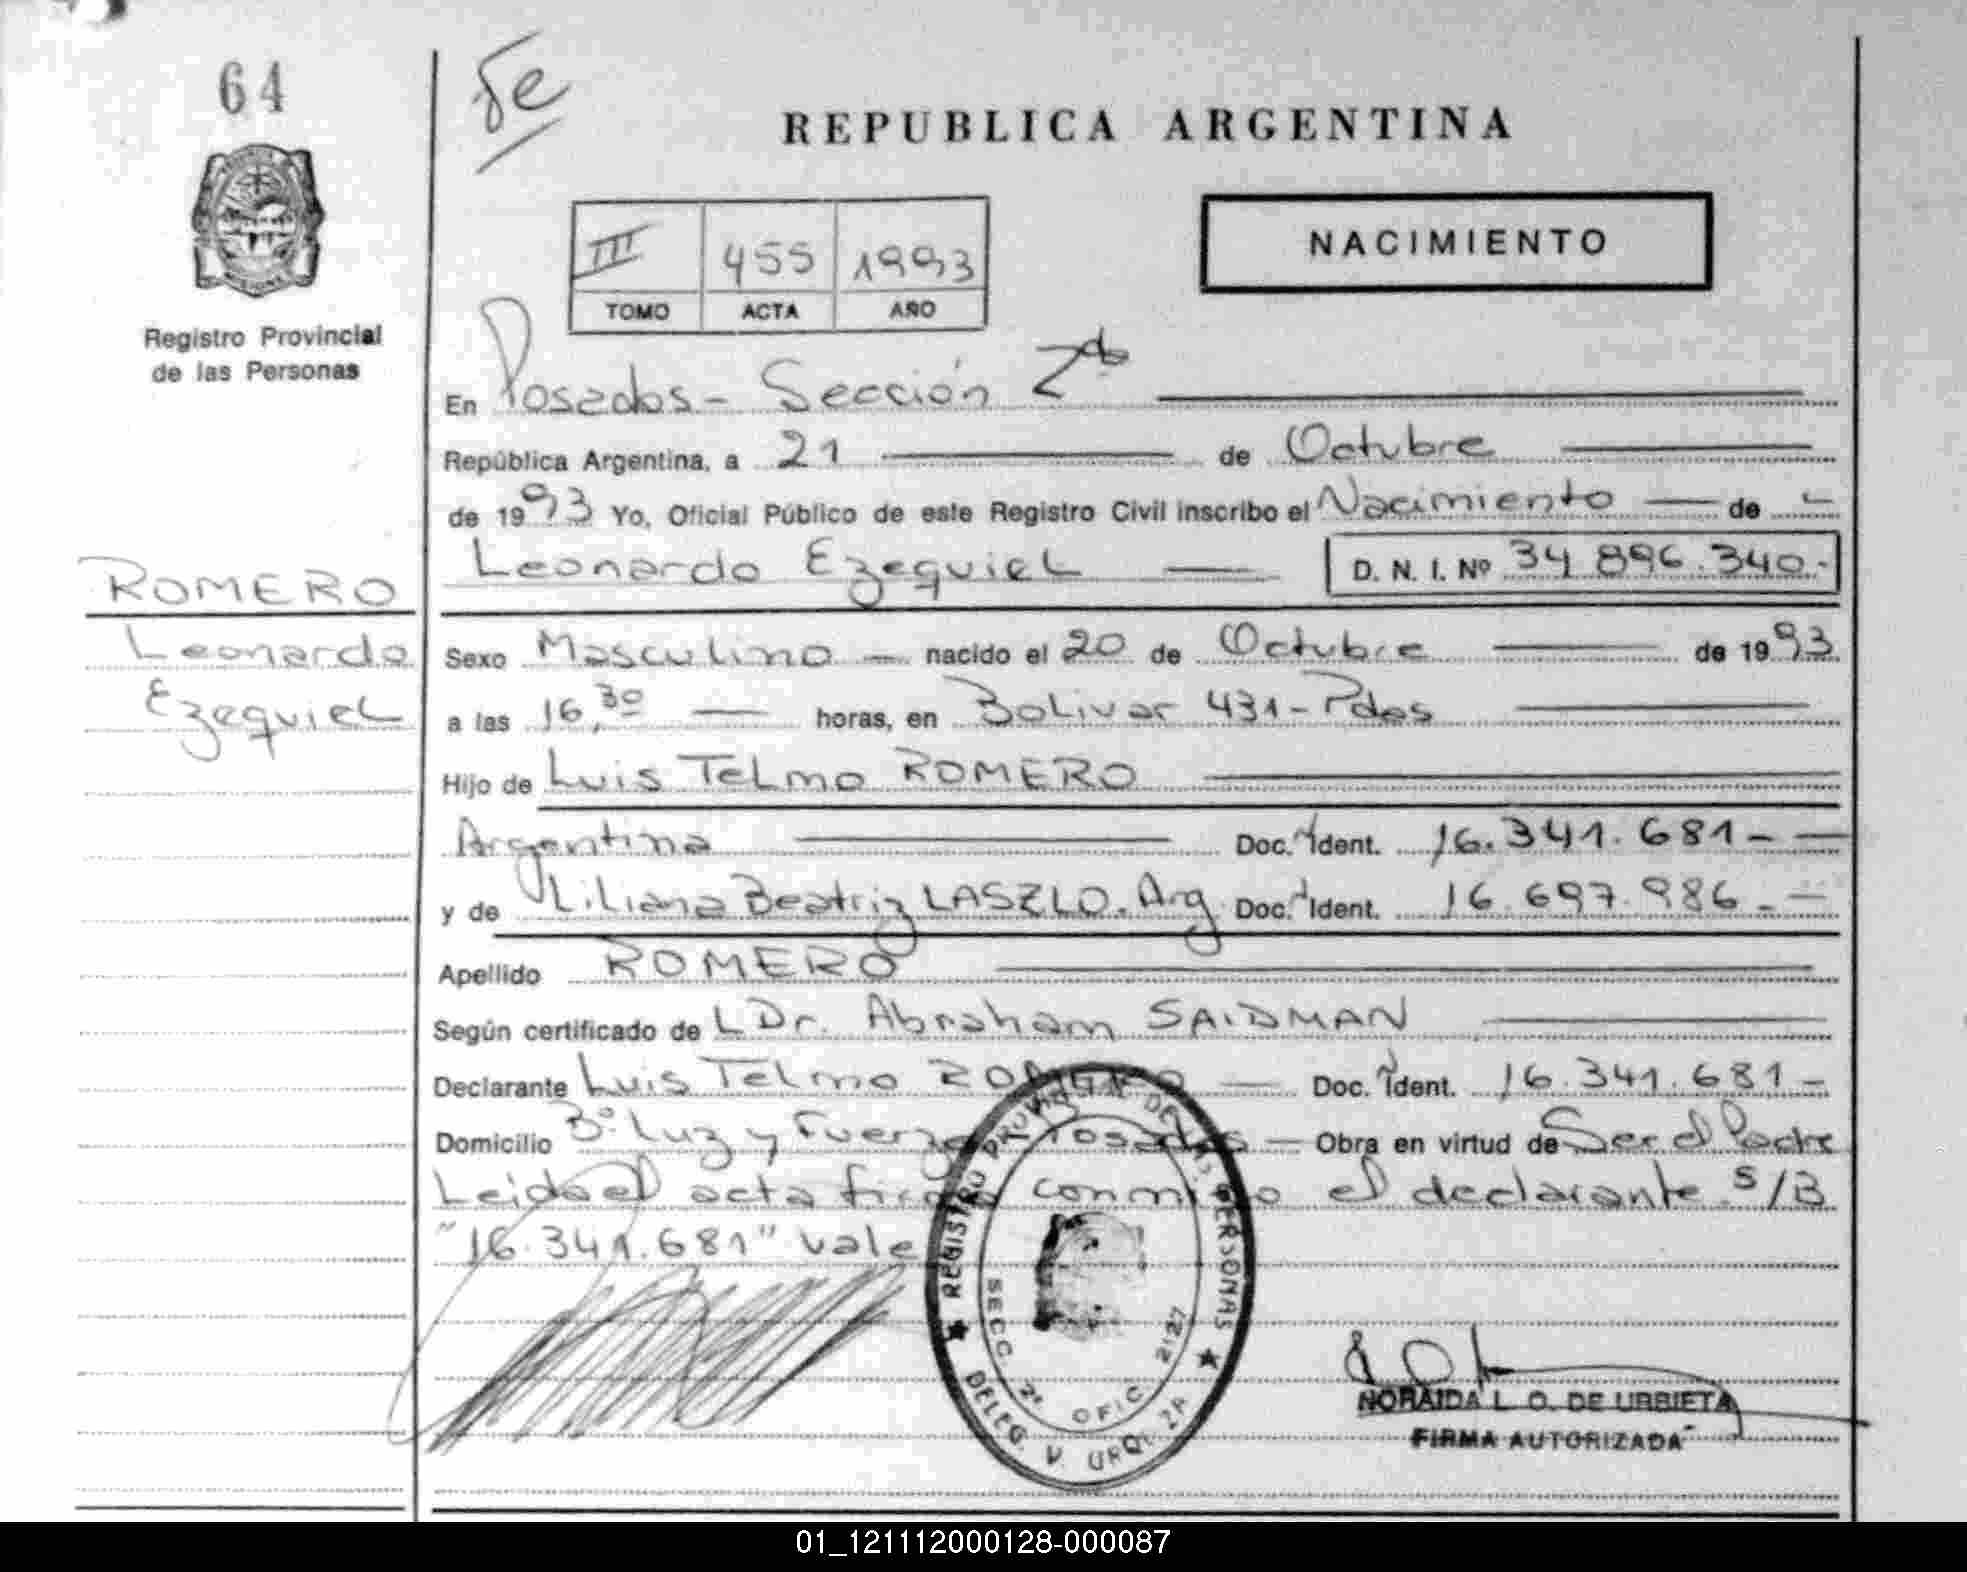 64
REPUBLICA ARGENTINA
III 455 1993
TOMO ACTA AÑO
NACIMIENTO
Registro Provincial
de las Personas
En Posadas - Sección 2da
República Argentina, a 21 de Octubre
de 1993 Yo, Oficial Público de este Registro Civil inscribo el Nacimiento de
Leonardo Ezequiel D. N. I. Nº 34.896.340.-
ROMERO
Leonardo
Ezequiel
Sexo Masculino nacido el 20 de Octubre de 1993
a las 16,30 horas, en Bolivar 431 - Pdas
Hijo de Luis Telmo ROMERO
Argentina Doc. Ident. 16.341.681-
y de Liliana Beatriz LASZLO. Arg Doc. Ident. 16.697.986.-
Apellido ROMERO
Según certificado de L Dr. Abraham SAIDMAN
Declarante Luis Telmo ROMERO Doc. Ident. 16.341.681-
Domicilio Bº Luz y Fuerza Posadas Obra en virtud de Ser el Padre
Leida el acta firma conmigo el declarante. S/B
"16.341.681" vale
REGISTRO PROVINCIAL DE LAS PERSONAS
SECC. 2º OFIC. 2127
DELEG. V. URQUIZA
NORAIDA L. O. DE URBIETA
FIRMA AUTORIZADA
01_121112000128-000087